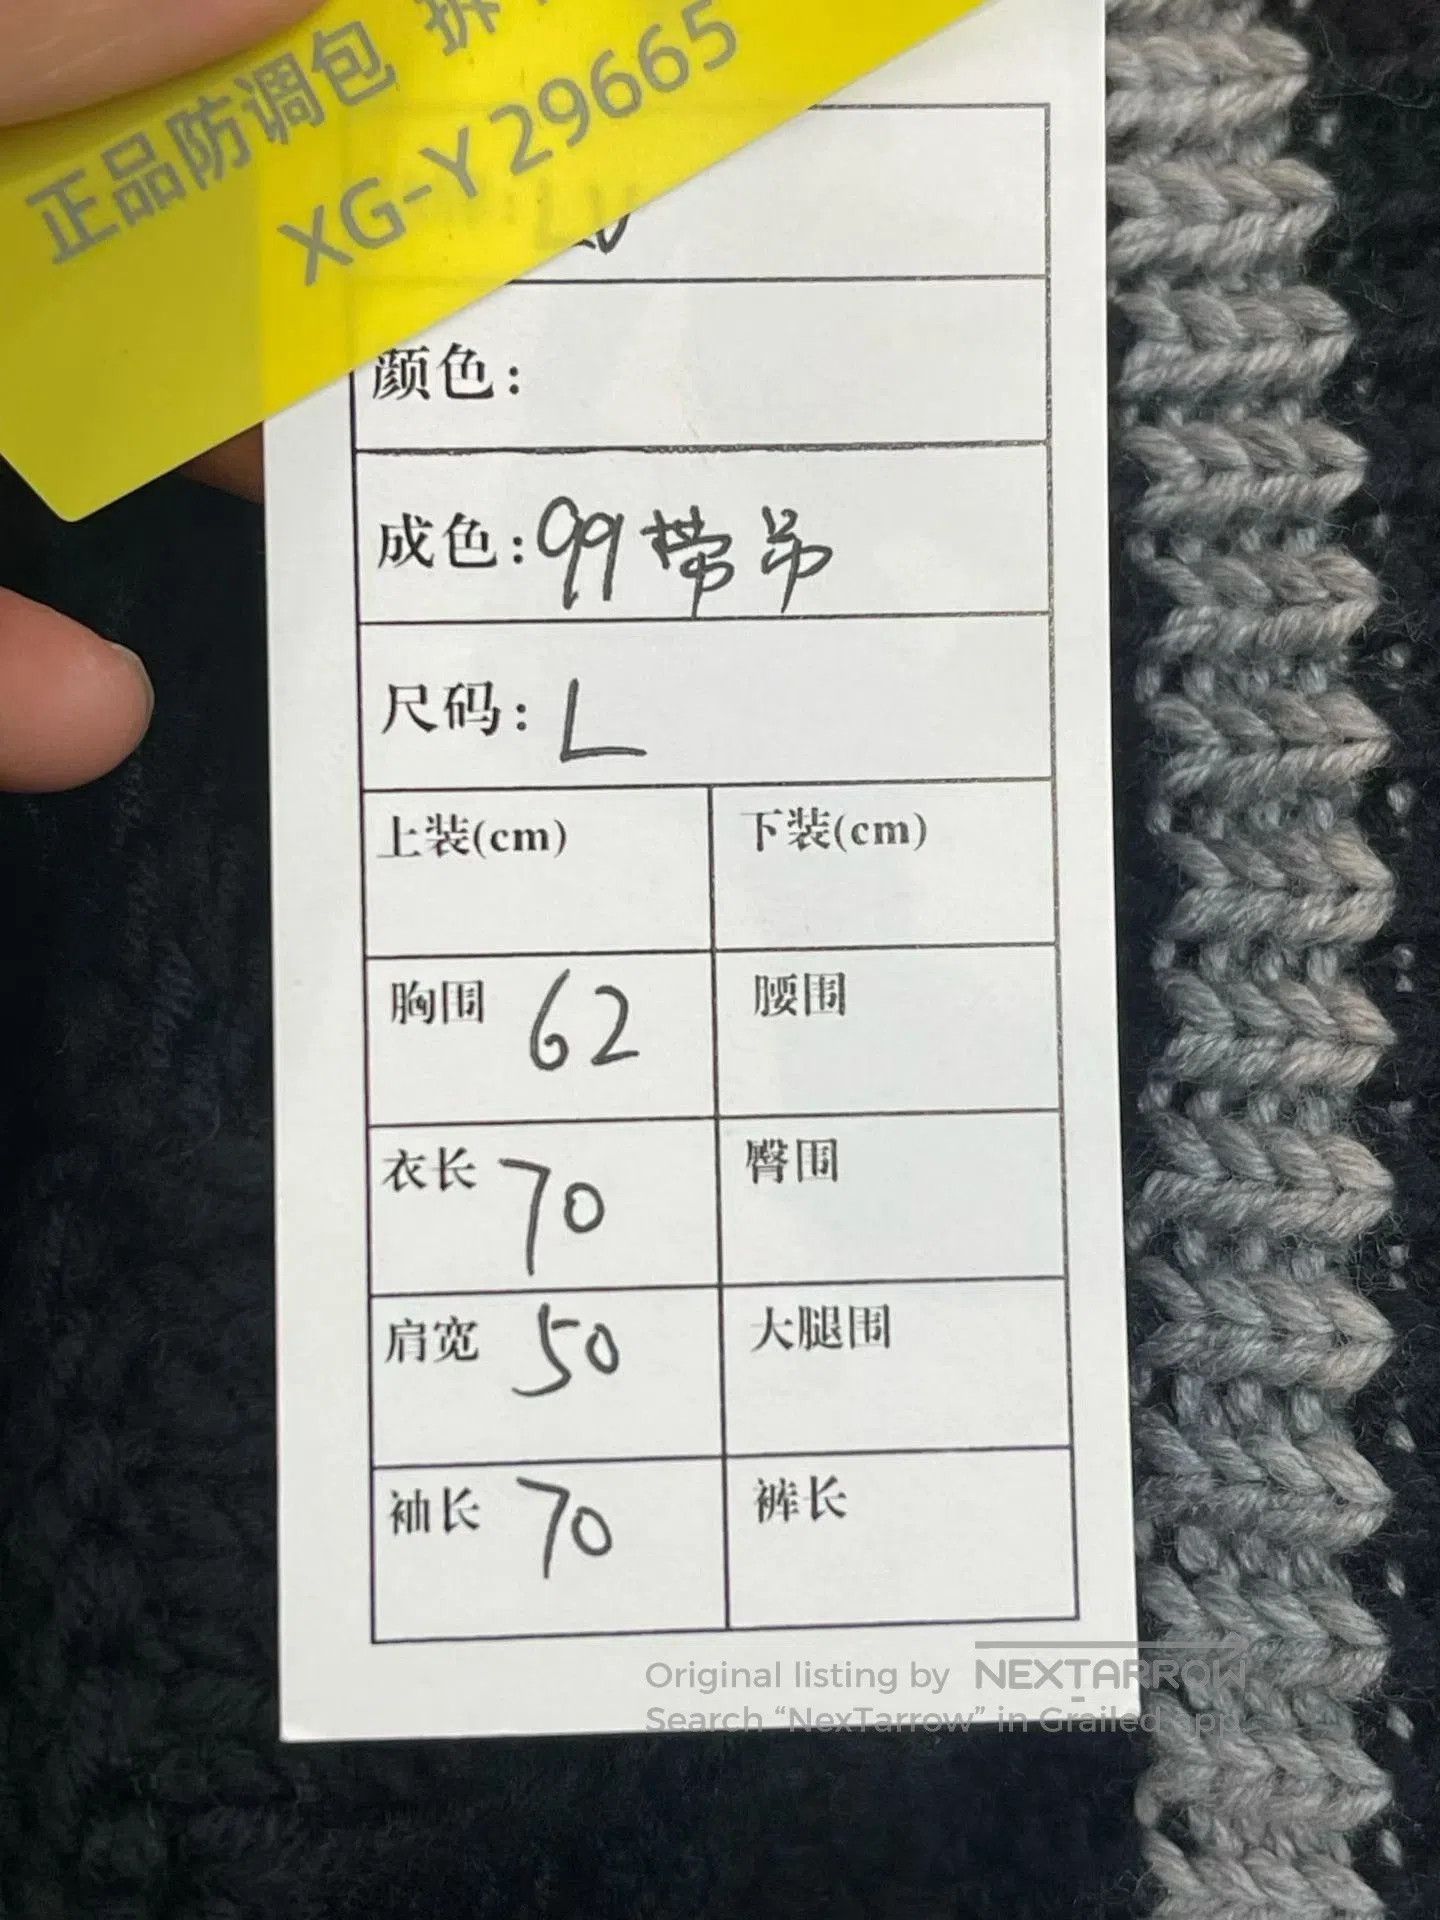 正品防调包 拆
XG-Y29665
颜色:
成色: 99带吊
尺码: L
上装(cm) 下装(cm)
胸围 62 腰围
衣长 70 臀围
肩宽 50 大腿围
袖长 70 裤长
Original listing by NEXTARROW
Search “NexTarrow” in Grailed app